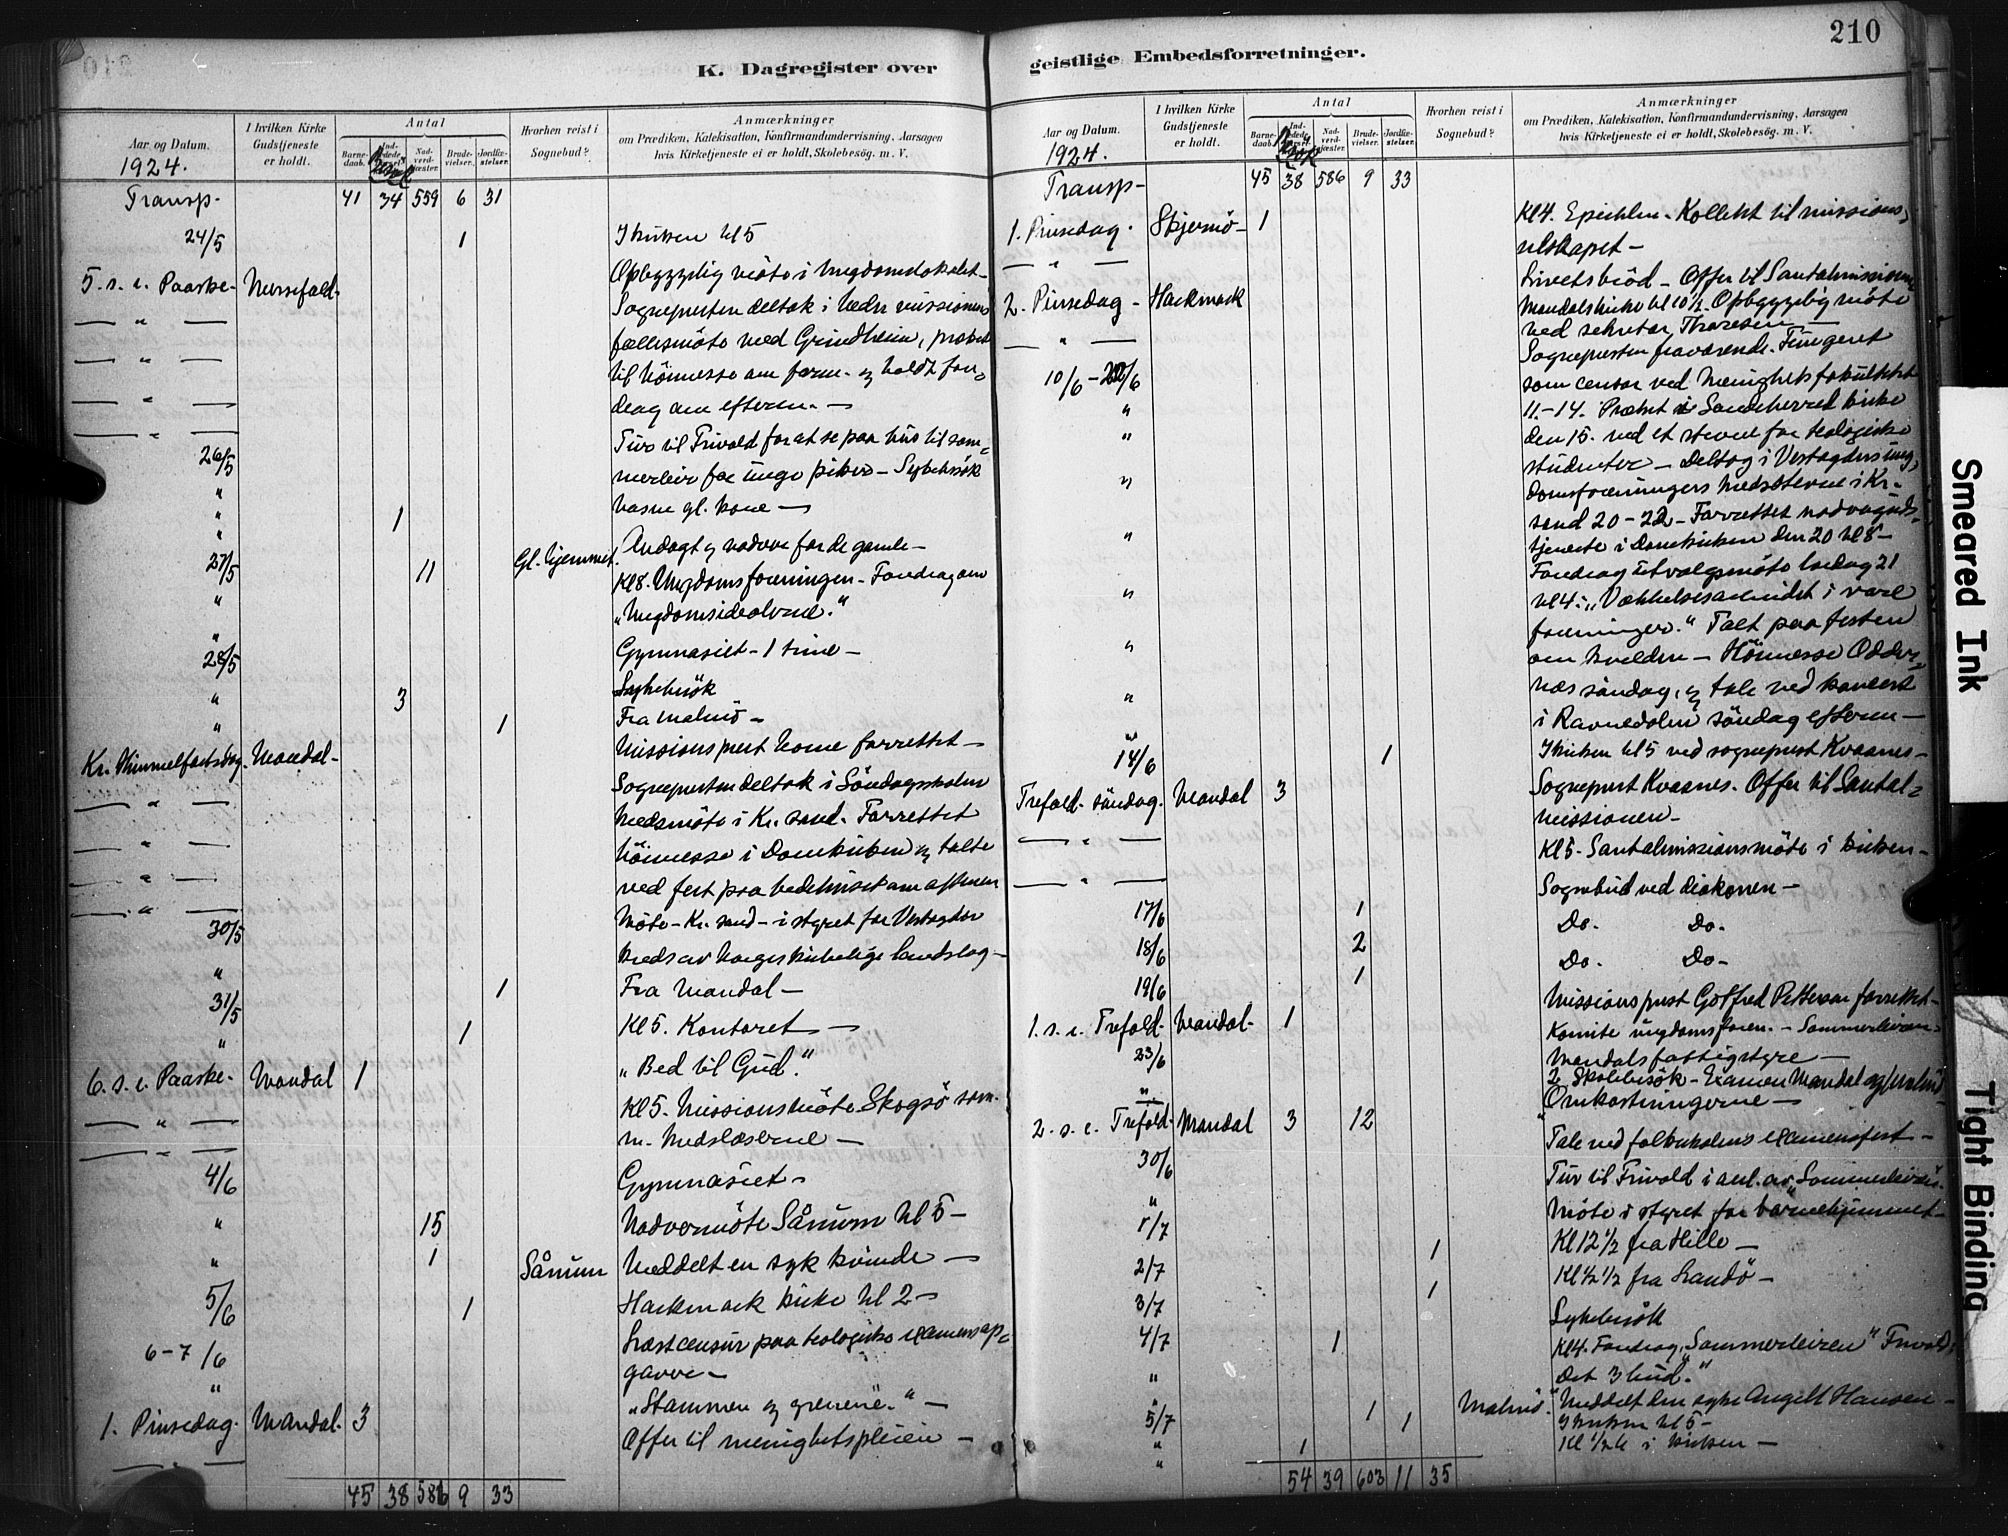 210
K. Dagregister over
Aar og Datum.
1924.
I hvilken Kirke Gudstjeneste er holdt.
Antal
Barnedaab.
Nadverdgjester
Brudevielser.
Jordfæstelser.
Hvorhen reist i Sognebud?
Anmærkninger
om Prædiken, Katekisation, Konfirmandundervisning, Aarsagen
hvis Kirketjeneste ei er holdt, Skolebesög. m. V.
Transp- 41 34 559 6 31
24/5 1 I kirken kl 5
Opbyggelig möte i ungdomslokalet-
5. s. e. Paaske-
Sognepresten deltok i
fællesmöte med Grindheim,
til höimesse om form. og holdt fore=
drag om efterm. —
26/5 Tur til Frivold for at se paa hus til som=
merleir for unge piker - Sykebesök
1 gl. kone —
27/5 11 Gl. hjemmet. Andagt og nadver for de gamle-
Kl 8. Ungdomsforeningen - Foredrag om
„Ungdomsidealerne."
28/5 Gymnasiet - 1 time -
3 Sykebesök
1 Fra Malmö -
Kr. Himmelfartsdag. Mandal- Missionsprest Home forrettet -
Sognepresten deltok i Söndagsskolens
kredsmöte i Kr. sand. Forrettet
höimesse i Domkirken og talte
ved fest paa bedehuset om aftenen
30/5 Möte - Kr. sand - i styret for Vestagder
kreds av Norges kirkelige landslag -
31/5 1 Fra Mandal -
1 Kl 5. Kontoret -
6. s. e. Paaske- Mandal 1 „Bed til Gud."
Kl 5. Missionsmöte Skogsö sam.
m.
4/6 Gymnasiet -
15 Nadvermöte Sånum kl 5 -
1 Sånum Meddelt en syk kvinde -
5/6 1 Harkmark kirke kl 2 -
6-7/6 Læst censur paa teologiske examensop=
gaver -
1. Pinsedag. Mandal. 3 „Stammen og grenene." -
Offer til menighetspleien -
45 38 586 9 33
geistlige Embedsforretninger.
210
Aar og Datum.
1924.
I hvilken Kirke Gudstjeneste er holdt.
Antal
Barnedaab.
Nadverdgjester
Brudevielser.
Jordfæstelser.
Hvorhen reist i Sognebud?
Anmærkninger
om Prædiken, Katekisation, Konfirmandundervisning, Aarsagen
hvis Kirketjeneste ei er holdt, Skolebesög. m. V.
Transp- 45 38 586 9 33
1. Pinsedag. Skjernö- 1 Kl 4. Epistelen - Kollekt til missions=
selskapet -
2. Pinsedag - Harkmark Livets bröd - Offer til Santalmissionen
Mandals kirke kl 10 1/2. Opbyggelig möte
ved sekretær Thoresen -
10/6 - 22/6 Sognepresten fraværende. Fungeret
som censor ved Menighetsfakultetet
11.-14. Præket i Sandeherred kirke
den 15. ved et stevne for teologiske
studenter - Deltog i Vestagders ung=
domsforeningers kredsstevne i Kr.-
sand 20-22 - Forrettet nadverguds=
tjeneste i Domkirken den 20 kl 8 -
Foredrag utvalgsmöte lördag 21
kl 4: „Vækkelsesarbeidet i vore
foreninger." Talt paa festen
om kvelden - Höimesse Odder=
næs söndag, og tale ved koncert
i Ravnedalen söndag efterm -
14/6 1 I kirken kl 5 ved sogneprest Kvasnes -
Trefold. söndag. Mandal 3 Sogneprest Kvasnes. Offer til Santal=
missionen -
Kl 5 - Santalmissionsmöte i kirken -
17/6 1 Sognebud ved diakonen -
18/6 2 Do. Do.
19/6 1 Do. Do-
1. s. e. Trefold. Mandal- 1 Missionsprest Gotfred Petterson forrettet -
23/6 Komite ungdomsforen. - Sommerleiren -
Mandals fattigstyre -
2 Skolebesök - Examen Mandal og Malmö -
2. s. e. Trefold. Mandal 3 12 Omkostningerne -
30/6 Tale ved folkeskolens examensfest -
Tur til Frivold i anl. av „Sommerleiren".
1/7 Möte i styret for barnehjemmet -
2/7 1 Kl 12 1/2 fra Hille -
3/7 1 Kl 4 1/2 fra Landö -
4/7 1 Sykebesök
Kl 4. Foredrag, „Sommerleiren" Frivold:
„Det 3 bud."
5/7 1 1 Malmö. Meddelt den syke Angell Hansen -
1 I kirken kl 5 -
Kl 1/2 6 i kirken -
54 39 603 11 35
Smeared Ink
Tight Binding